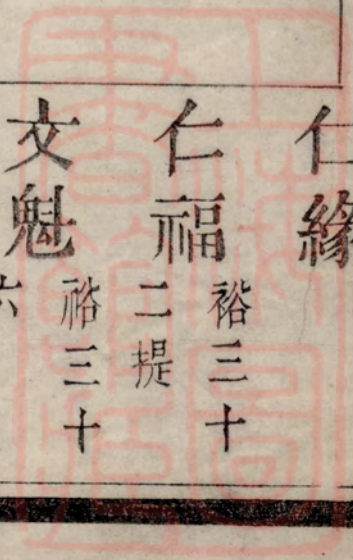 仁緣
仁福
裕三十
二提
文魁
裕三十
六